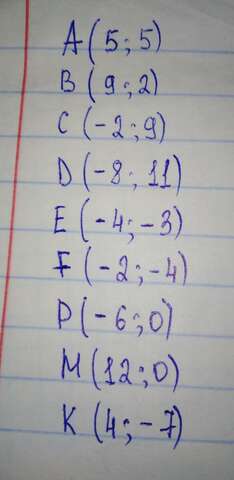 A(5;5)
B(9;2)
C(-2;9)
D(-8;11)
E(-4;-3)
F(-2;-4)
P(-6;0)
M(12;0)
K(4;-7)